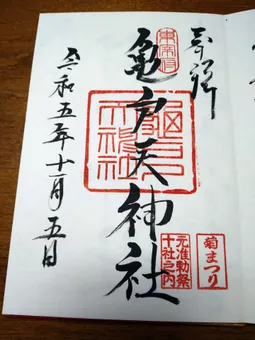 奉拝
東宰府
亀戸天神社
菊まつり
元准勅祭
十社之内
令和五年十一月五日